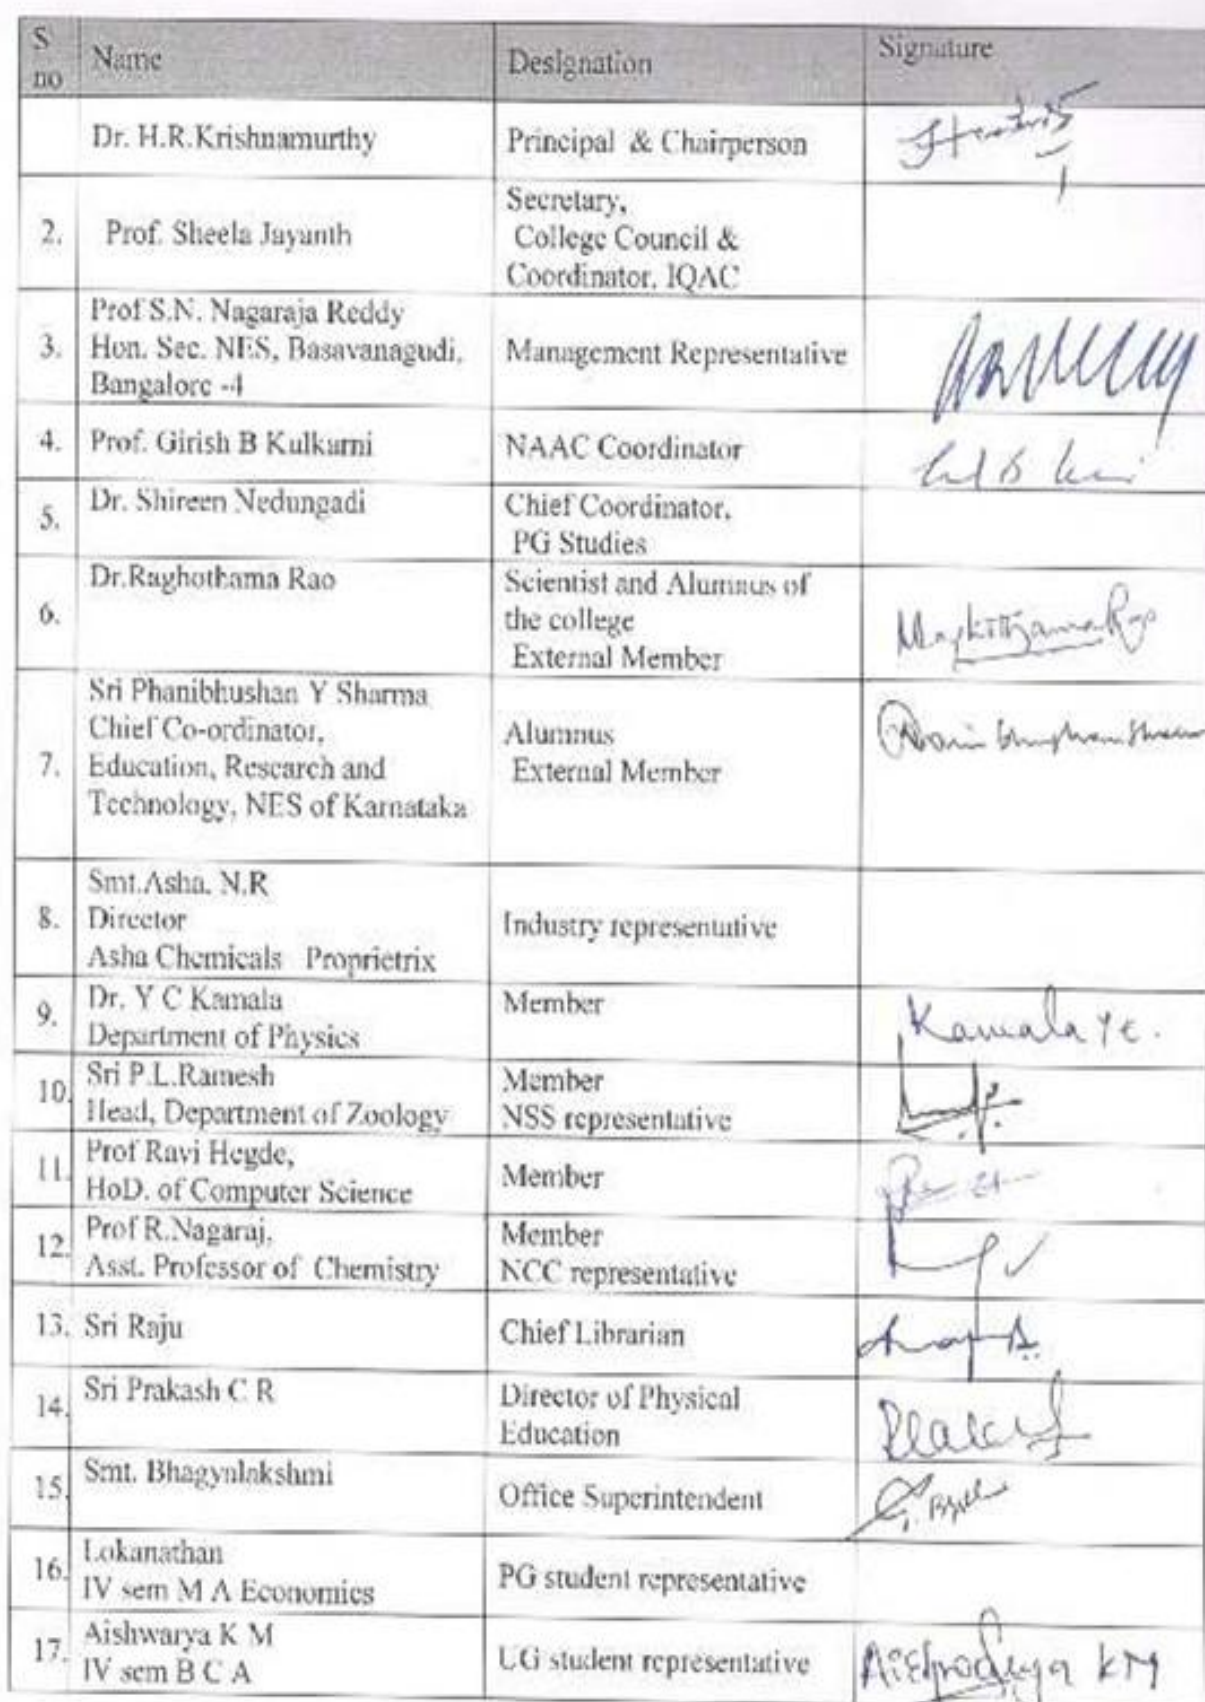 S no Name Designation Signature
Dr. H.R.Krishnamurthy Principal & Chairperson
2. Prof. Sheela Jayanth Secretary,
College Council &
Coordinator, IQAC
3. Prof S.N. Nagaraja Reddy
Hon. Sec. NES, Basavanagudi,
Bangalore -4
Management Representative
4. Prof. Girish B Kulkarni NAAC Coordinator
5. Dr. Shireen Nedungadi Chief Coordinator,
PG Studies
6. Dr.Raghothama Rao Scientist and Alumnus of
the college
External Member
7. Sri Phanibhushan Y Sharma
Chief Co-ordinator,
Education, Research and
Technology, NES of Karnataka
Alumnus
External Member
8. Smt.Asha. N.R
Director
Asha Chemicals Proprietrix
Industry representative
9. Dr. Y C Kamala
Department of Physics
Member
Kamala Y C.
10. Sri P.L.Ramesh
Head, Department of Zoology
Member
NSS representative
11. Prof Ravi Hegde,
HoD. of Computer Science
Member
12. Prof R.Nagaraj,
Asst. Professor of Chemistry
Member
NCC representative
13. Sri Raju Chief Librarian
14. Sri Prakash C R Director of Physical
Education
15. Smt. Bhagynlakshmi Office Superintendent
16. Lokanathan
IV sem M A Economics
PG student representative
17. Aishwarya K M
IV sem B C A
UG student representative
KM